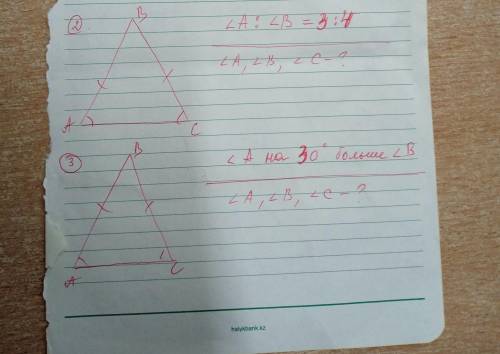 ②
B
∠A : ∠B = 3:4
∠A, ∠B, ∠C - ?
A
C
③
B
∠A на 30° больше ∠B
∠A, ∠B, ∠C - ?
A
C
halykbank.kz